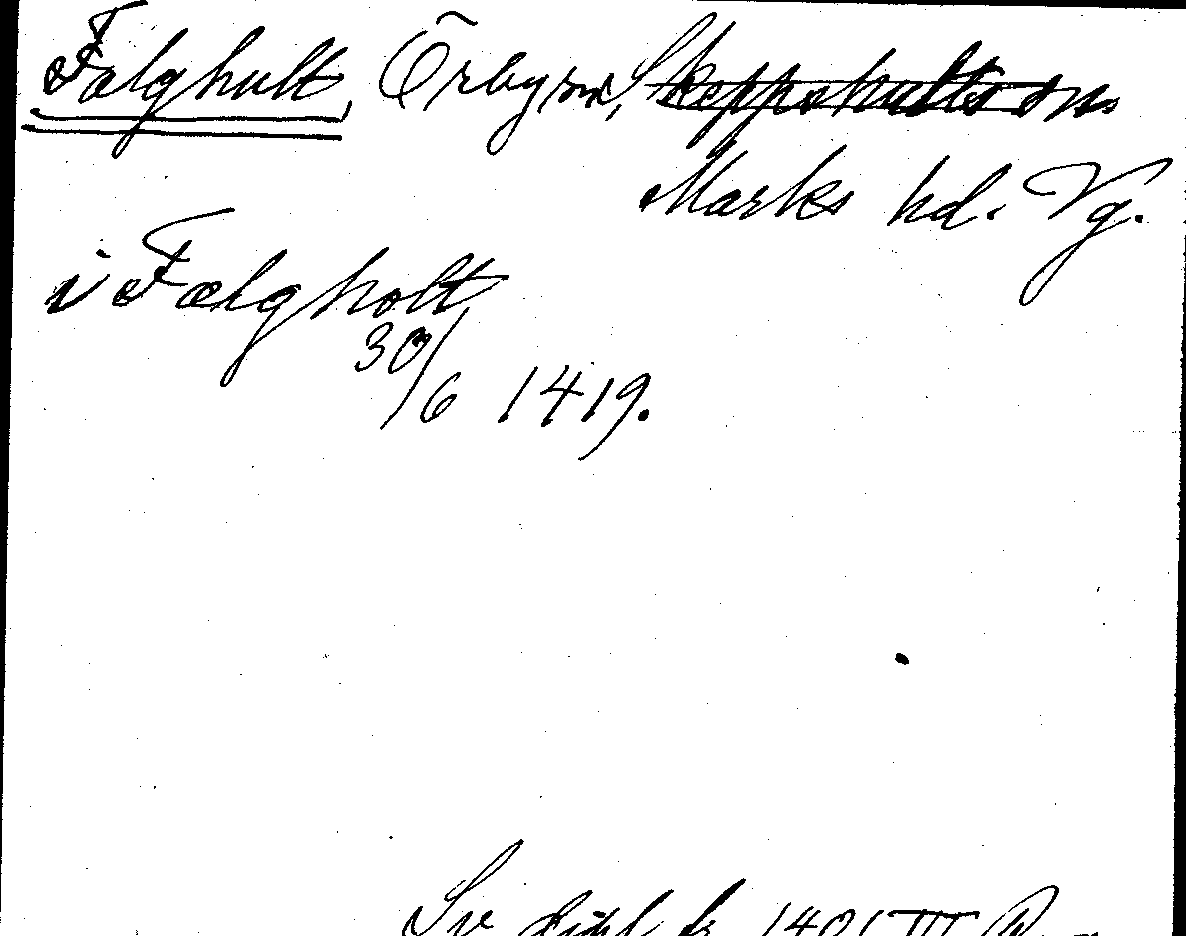 Falghult, Örby sn, Skeppshults sn
Marks hd. Vg.
i Fælgholt
30/6 1419.
Sv dipl fr 1401 III